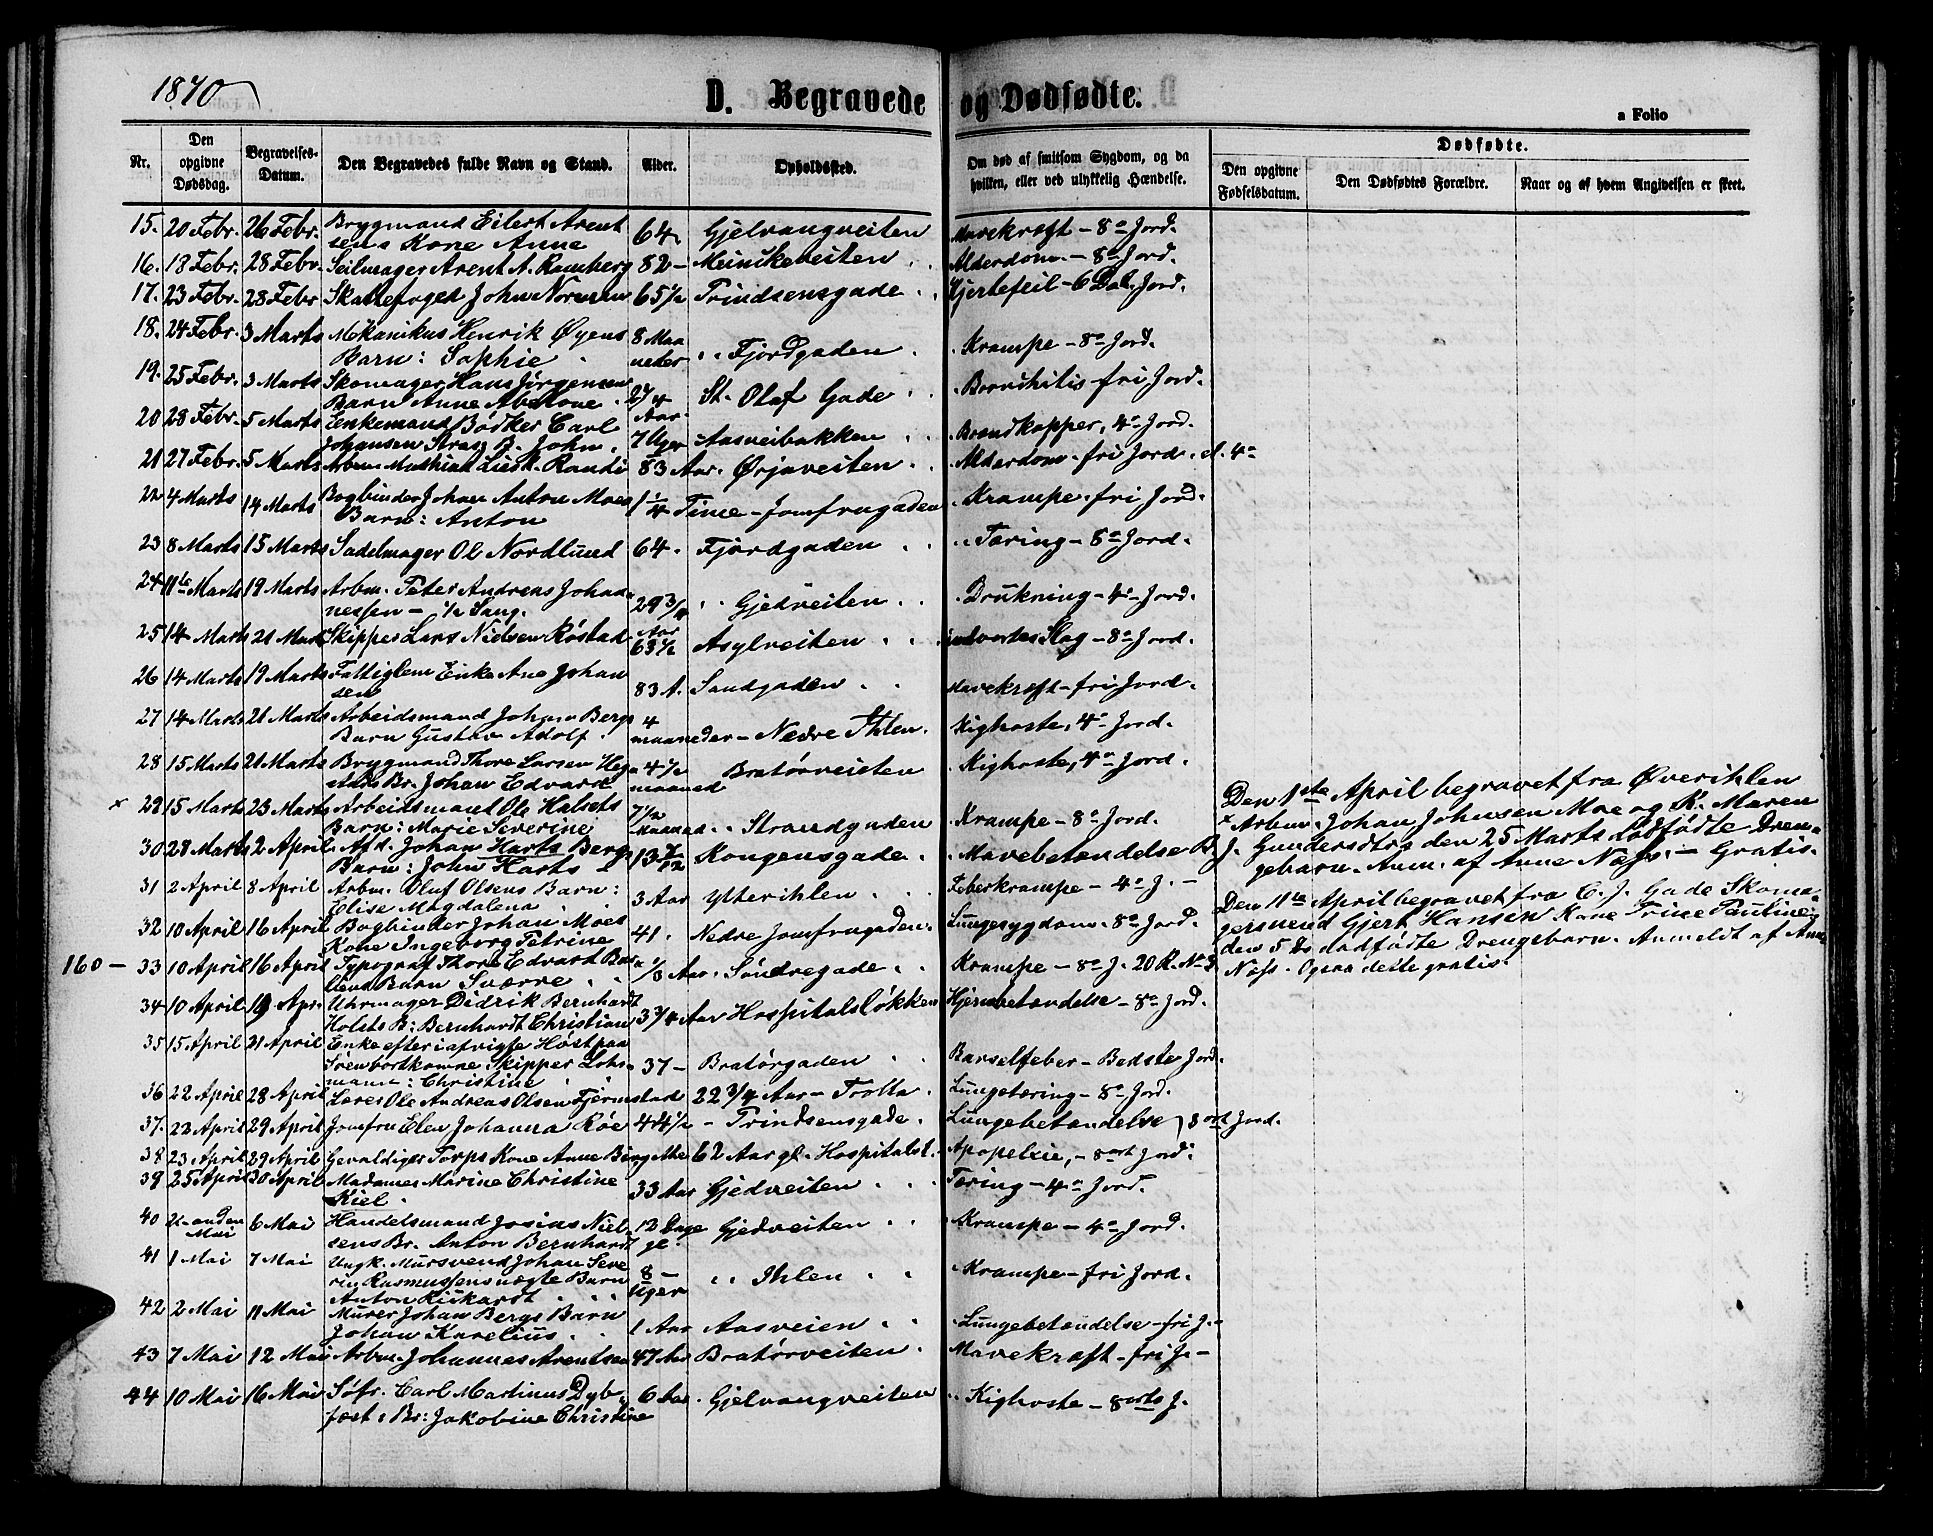 1870
D. Begravede og Dødfødte.
a Folio
Nr. Den opgivne Dødsdag. Begravelses-Datum. Den Begravedes fulde Navn og Stand. Alder. Opholdssted. Om død af smitsom Sygdom, og da hvilken, eller ved ulykkelig Hændelse. Dødfødte.
Den opgivne Fødselsdatum. Den Dødfødtes Forældre. Naar og af hvem Angivelsen er skeet.
15. 20 Febr. 26 Febr. Brygmand Eilert Arent
sens Kone Anne 64. Gjelvangveiten Mavekræft - 8 o Jord.
16. 13 Febr. 28 Febr. Seilmager Arent A. Ramberg 82 - Meinikeveiten Alderdom - 8 o Jord.
17. 23 Febr. 28 Febr Skattefoged John Normann 65 1/2 Prindsensgade Hjertefeil - 6 Dal. Jord.
18. 24 Febr. 3 Marts Mekanikus Henrik Øyens
Barn: Sophie 8 Maaneder Fjordgaden Krampe - 8 o Jord.
19. 25 Febr. 3 Marts Skomager Hans Jørgensen
Barn Anne Abelone Aar St. Olaf Gade Bronchitis - fri Jord.
20 28 Febr. 5 Marts Enkemand Bødker Carl
Johansen Stras B. John. 7 Uger Aasveibakken Brandkopper, 4 o Jord.
21 27 Febr. 5 Marts Arbm. Mathias Lusk. Randi 83 Aar. Ørjaveiten Alderdom - fri Jord. d. 4 o
22 4 Marts 14 Marts Bogbinder Johan Anton Moes
Barn: Anton 1 1/4 Time - Jomfrugaden Krampe - fri Jord.
23 8 Marts 15 Marts Sadelmager Ol. Nordlund 64. Fjordgaden Tæring - 8 o Jord.
24 11te Marts 19 Marts Arbm. Peter Andreas Johan
nessen - 1/2 Sang. 29 3/4 Gjedveiten Drukning - 4 o Jord.
25 14 Marts 21 Marts Skipper Lars Nielsen Røstad Aar 63 1/2 Asylveiten indvortes Slag - 8 o Jord.
26 14 Marts 19 Marts Fattiglem Enke Ane Johan
sen 83 A. Sandgaden Mavekræft - fri Jord.
27 14 Marts 21 Marts Arbeidsmand Johan Bergs
Barn Gustav Adolf. 4 maaneder - Nedre Ihlen. Kighoste, 4 o Jord.
28 15 Marts 21 Marts Brygmand Thore Larsen Heg
stads Br. Johan Edvard 4 1/2 maaned Bratørveiten Kighoste, 4 o Jord.
x 29 15 Marts 23 Marts Arbeidsmand Ole Halsets
Barn: Marie Severine 7 1/2 Maaned. Strandgaden Krampe - 8 o Jord.
30 28 Marts 2 April Afd. Johan Harts Bergs
Barn: John Harts 13 7/12 Kongensgade. Mavebetændelse
31 2 April 8 April Arbm. Oluf Olsens Barn:
Elise Magdalena 3 Aar Ytterihlen Feberkrampe - 4 o J. -
32 10 April 16 April Bogbinder Johan Moes
Kone Ingeborg Petrine 41. Nedre Jomfrugaden. Lungesygdom. 8 o Jord.
160 - 33 10 April 16 April Typograf Thore Edvard
Barn Sverre 1/8 Aar. Søndregade Krampe - 8 o J. 20 R. No 3
34 10 April 19 Apr. Uhrmager Didrik Bernhardt
Holsts B: Bernhardt Christian 3 3/4 Aar Hospitalsløkken Hjernebetændelse - 8 o Jord.
35 15 April 21 April Enke efter i afvigte Høst paa
Søen bortkomne Skipper Lohr
mann: Christine 37 - Bratørgaden Barselfeber - Bedste Jord.
36 22 April 28 April Lærer Ole Andreas Olsen Fjerm stads 22 3/4 Aar - Trolla. Lungetæring - 8 o Jord.
37. 22 April 29 April Jomfru Elen Johanna Røe 44 1/2 - Prindsensgade. Lungebetændelse, 8 ort Jord.
38 23 April 29 April Gevaldiger Torps Kone Anne Birgithe 62 Aar gl. Hospitalsl. Apopelxie, - 8 ort Jord.
39 25 April 30 April Madame Marine Christine
Kiel. 33 Aar Gjedveiten Tæring - 4 o Jord.
40 2. anden Mai 6 Mai Handelsmand Josias Niel
sens Br. Anton Bernhardt 12 Dage Gjedveiten Krampe - 4 o Jord.
41 1 Mai 7 Mai Ungk. Mursvend Johan Seve
rin Rasmussens uægte Barn
Anton Rickardt 8 - Uger Ihlen Krampe - fri Jord.
42 2 Mai 11 Mai Murer Johan Bergs Barn
Johan Karelius 1 Aar Aasveien Lungebetændelse - fri J. -
43 7 Mai 12 Mai Arbm. Johannes Arentsen 47 Aar Bratørveiten Mavekræft - fri J. -
44 10 Mai 16 Mai Søfr. Carl Martinus Dyb
fæst: Br: Jakobine Christine 6 Aar. Gjelvangveiten Kighoste - 8 orts J.
Den 1ste April begravet fra Øverihlen
x Arbm. Johan Johnsen Moe og K. Maren
B J. Gundersdtrs den 25 Marts dødfødte Dren
gebarn. Anm. af Anne Næss. - Gratis.
Den 11te April begravet fra C. J. Gade Skoma
gersvend Gjert Hansen Kone Trine Pauline
den 5 Ds dødfødte Drengebarn. Anmeldt af Anne
Næss. Ogsaa dette gratis.